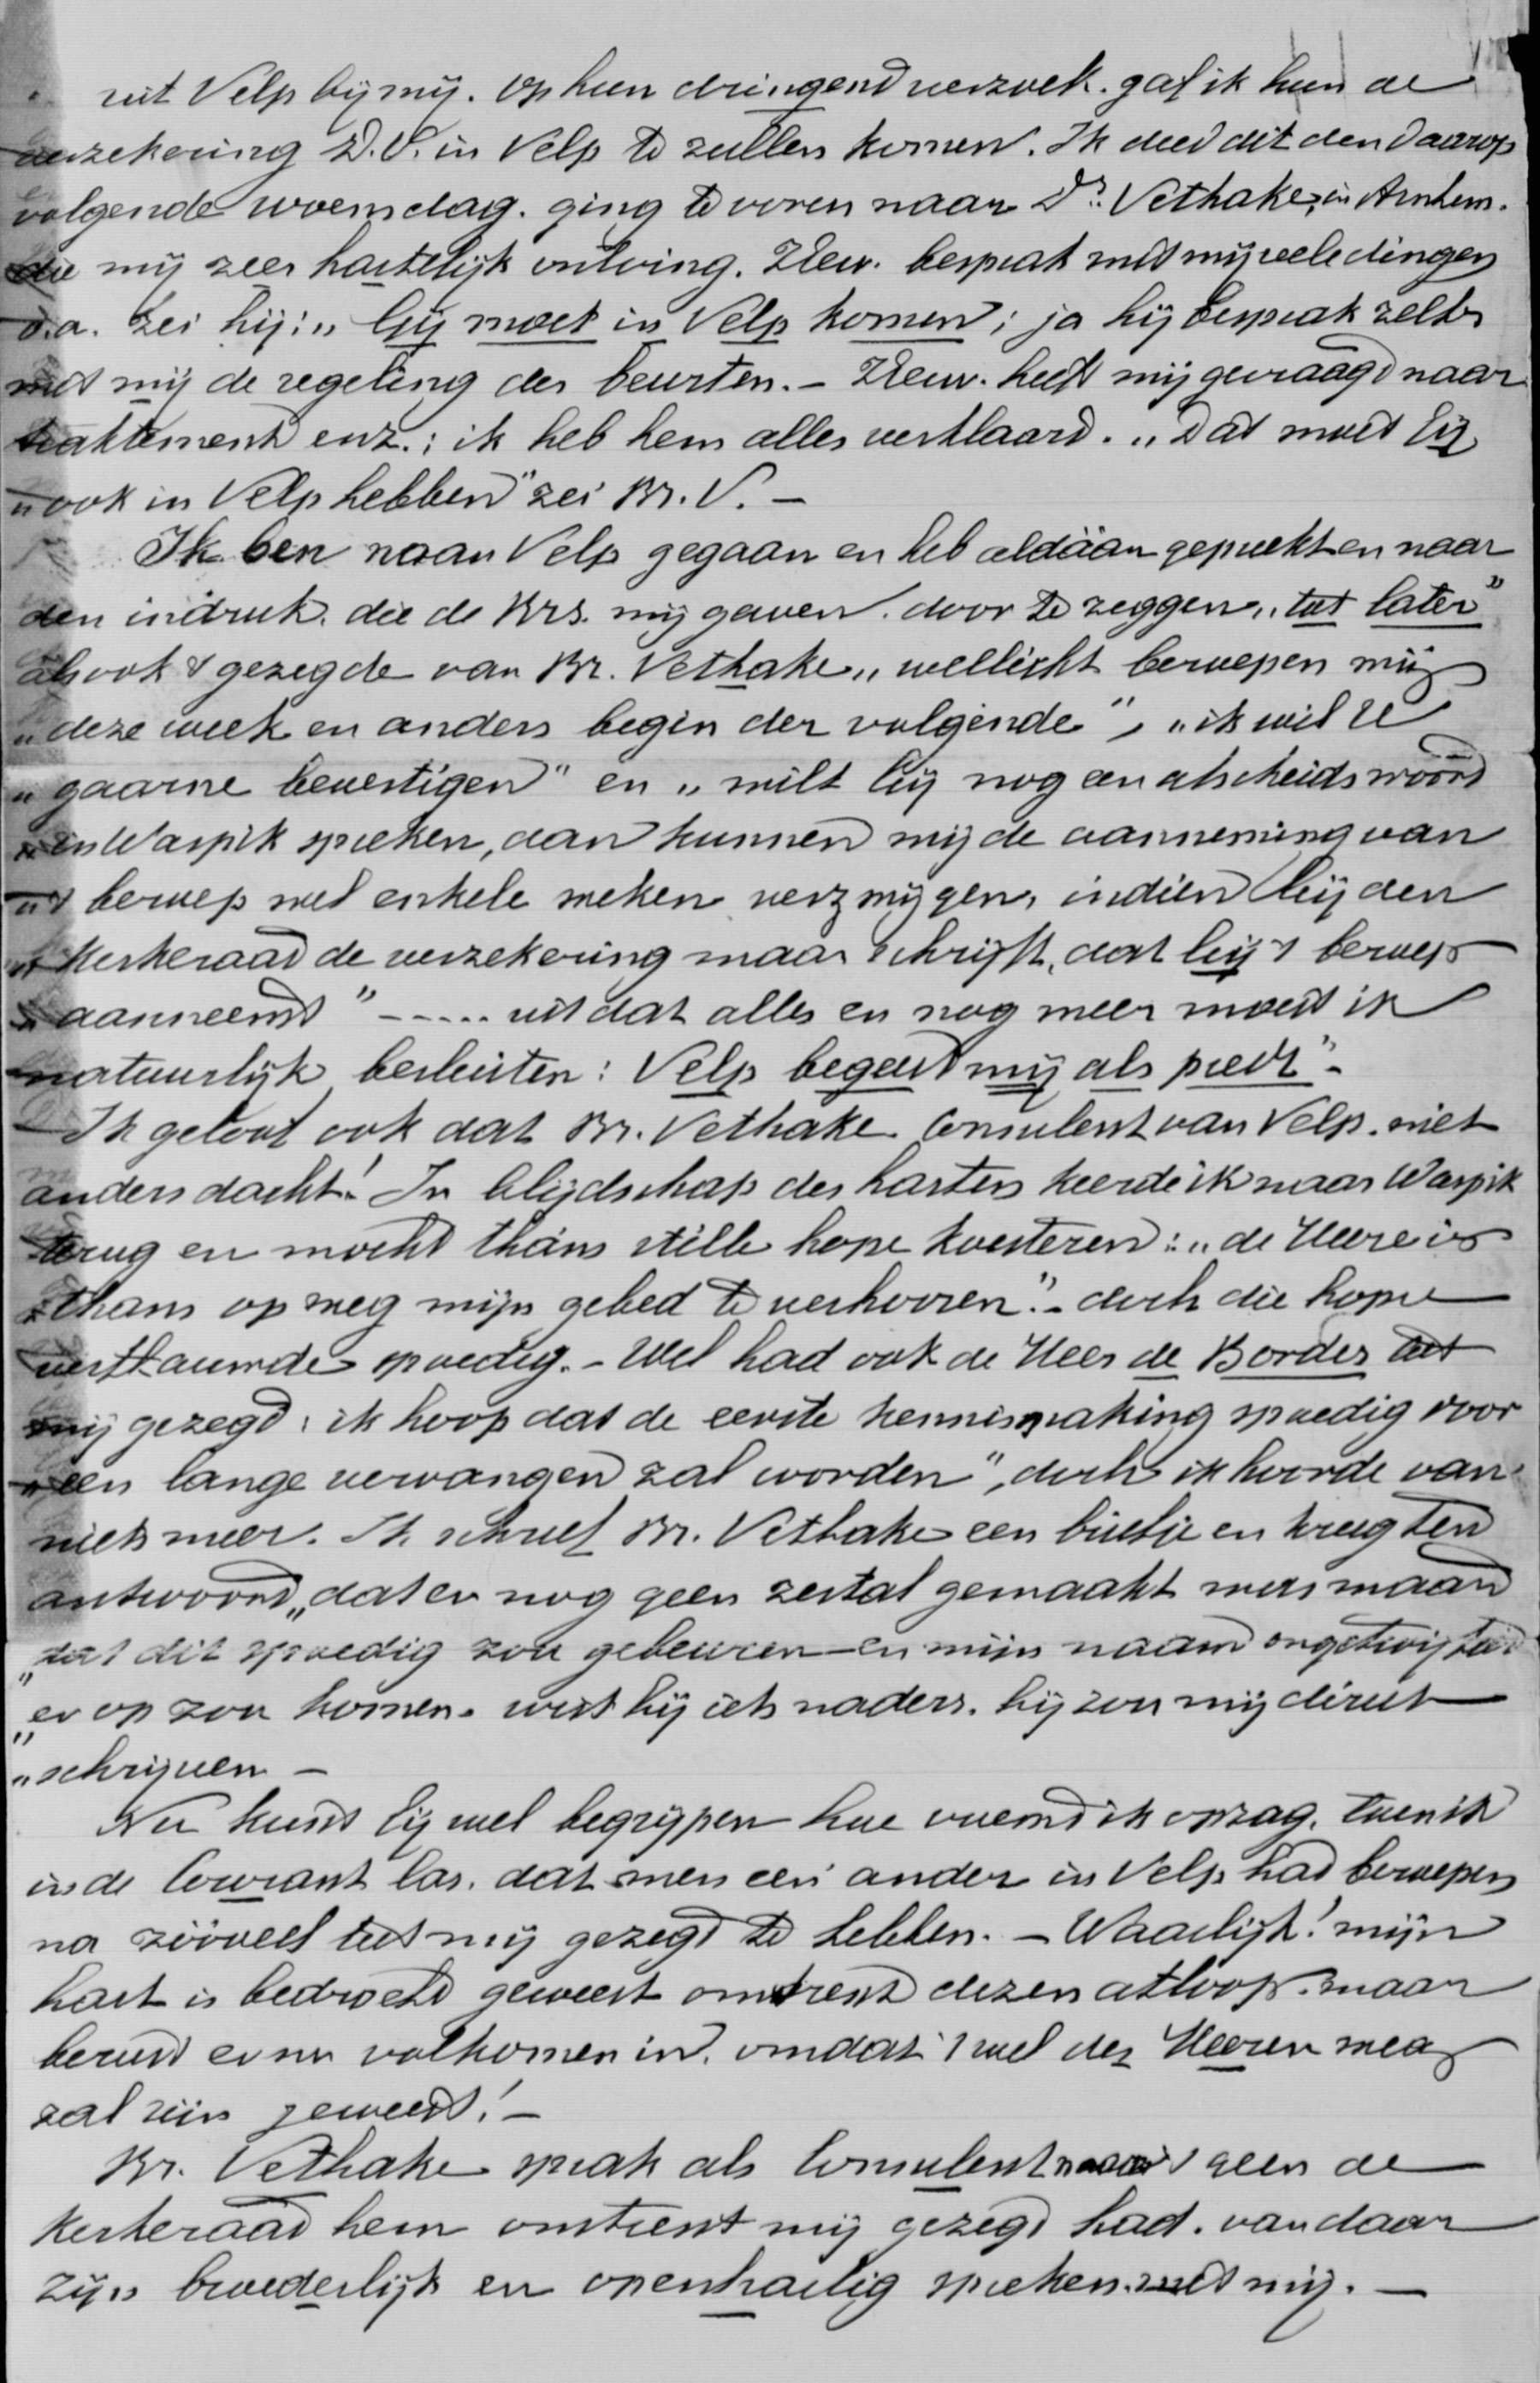 uit Velp bij mij. Op hun dringend verzoek gaf ik hun de
verzekering D.V. in Velp te zullen komen. Ik deed dit den daarop
volgende woensdag. ging te voren naar Ds. Vethake, in Arnhem.
die mij zeer hartelijk ontving. ZEew. besprak met mij veele dingen
o.a. zei hij: „Gij moet in Velp komen; ja hij besprak zelfs
met mij de regeling der beurten. – ZEeuw. heeft mij gevraagd naar
traktement enz.; ik heb hem alles verklaard. „Dat moet Gij
„ook in Velp hebben" zei Br. V. –
Ik ben naar Velp gegaan en heb aldáár gepreekt en naar
den indruk, die de Brs. mij gaven, door te zeggen „tot later"
als ook 't gezegde van Br. Vethake „wellicht beroepen wij
„deze week en anders begin der volgende", „ik wil U
„gaarne bevestigen" en „wilt Gij nog een afscheidswoord
„in Waspik spreken, dan kunnen wij de aanneming van
„'t beroep wel enkele weken verzwijgen, indien Gij den
„Kerkeraad de verzekering maar schrijft, dat Gij 't beroep
„aanneemt" ----- uit dat alles en nog meer moest ik
natuurlijk besluiten: Velp begeert mij als predt." –
Ik geloof ook dat Br. Vethake Consulent van Velp, niet
anders dacht! In blijdschap des harten keerde ik naar Waspik
terug en mocht tháns stille hope koesteren: „de Heere is
„thans op weg mijn gebed te verhooren." – doch die hope
verflauwde spoedig. – Wel had ook de Heer de Border tot
mij gezegd: ik hoop dat de eerste kennismaking spoedig voor
„een lange vervangen zal worden", doch ik hoorde van
niets meer. Ik schreef Br. Vethake een briefje en kreeg ten
antwoord, „dat er nog geen zestal gemaakt was maar
„dat dit spoedig zou gebeuren en mijn naam ongetwijfeld
„er op zou komen. wist hij iets naders, hij zou mij direct
„schrijven –
Nu kunt Gij wel begrijpen hoe vreemd ik opzag, toen ik
in de Courant las, dat men een ander in Velp had beroepen
na zóóveel tot mij gezegd te hebben. – Waarlijk! mijn
hart is bedroefd geweest omtrent dezen afloop. maar
berust er nu volkomen in, omdat 't wel des Heeren weg
zal zijn geweest! –
Br. Vethake sprak als Consulent naar 't geen de
Kerkeraad hem omtrent mij gezegd had. van daar
zijn broederlijk en openhartig spreken met mij. –